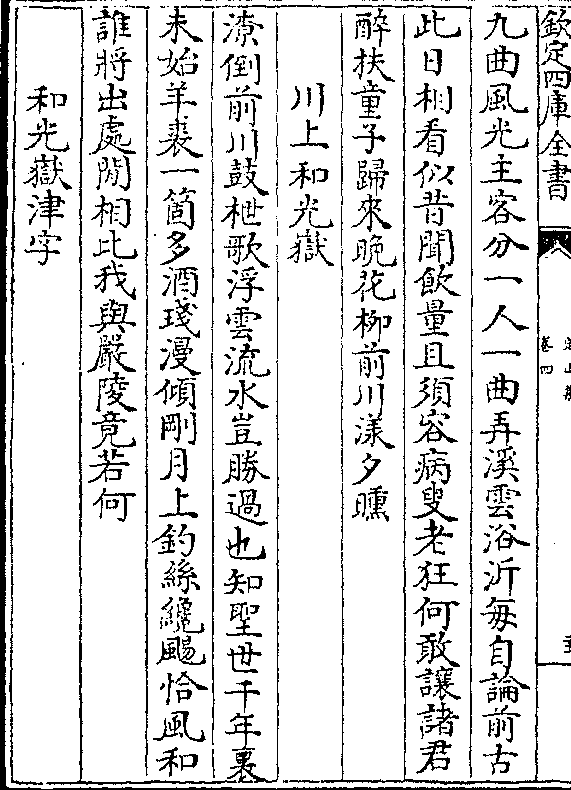 欽定四庫全書
卷四
九曲風光主客分一人一曲弄溪雲浴沂每自論前古
此日相看似昔聞飲量且須容病叟老狂何敢讓諸君
醉扶童子歸來晚花柳前川漾夕曛
川上和光嶽
潦倒前川鼓枻歌浮雲流水豈勝過也知聖世千年裏
未始羊裘一箇多酒琖漫傾剛月上釣絲纔颺恰風和
誰將出處閒相比我與嚴陵竟若何
和光嶽津字